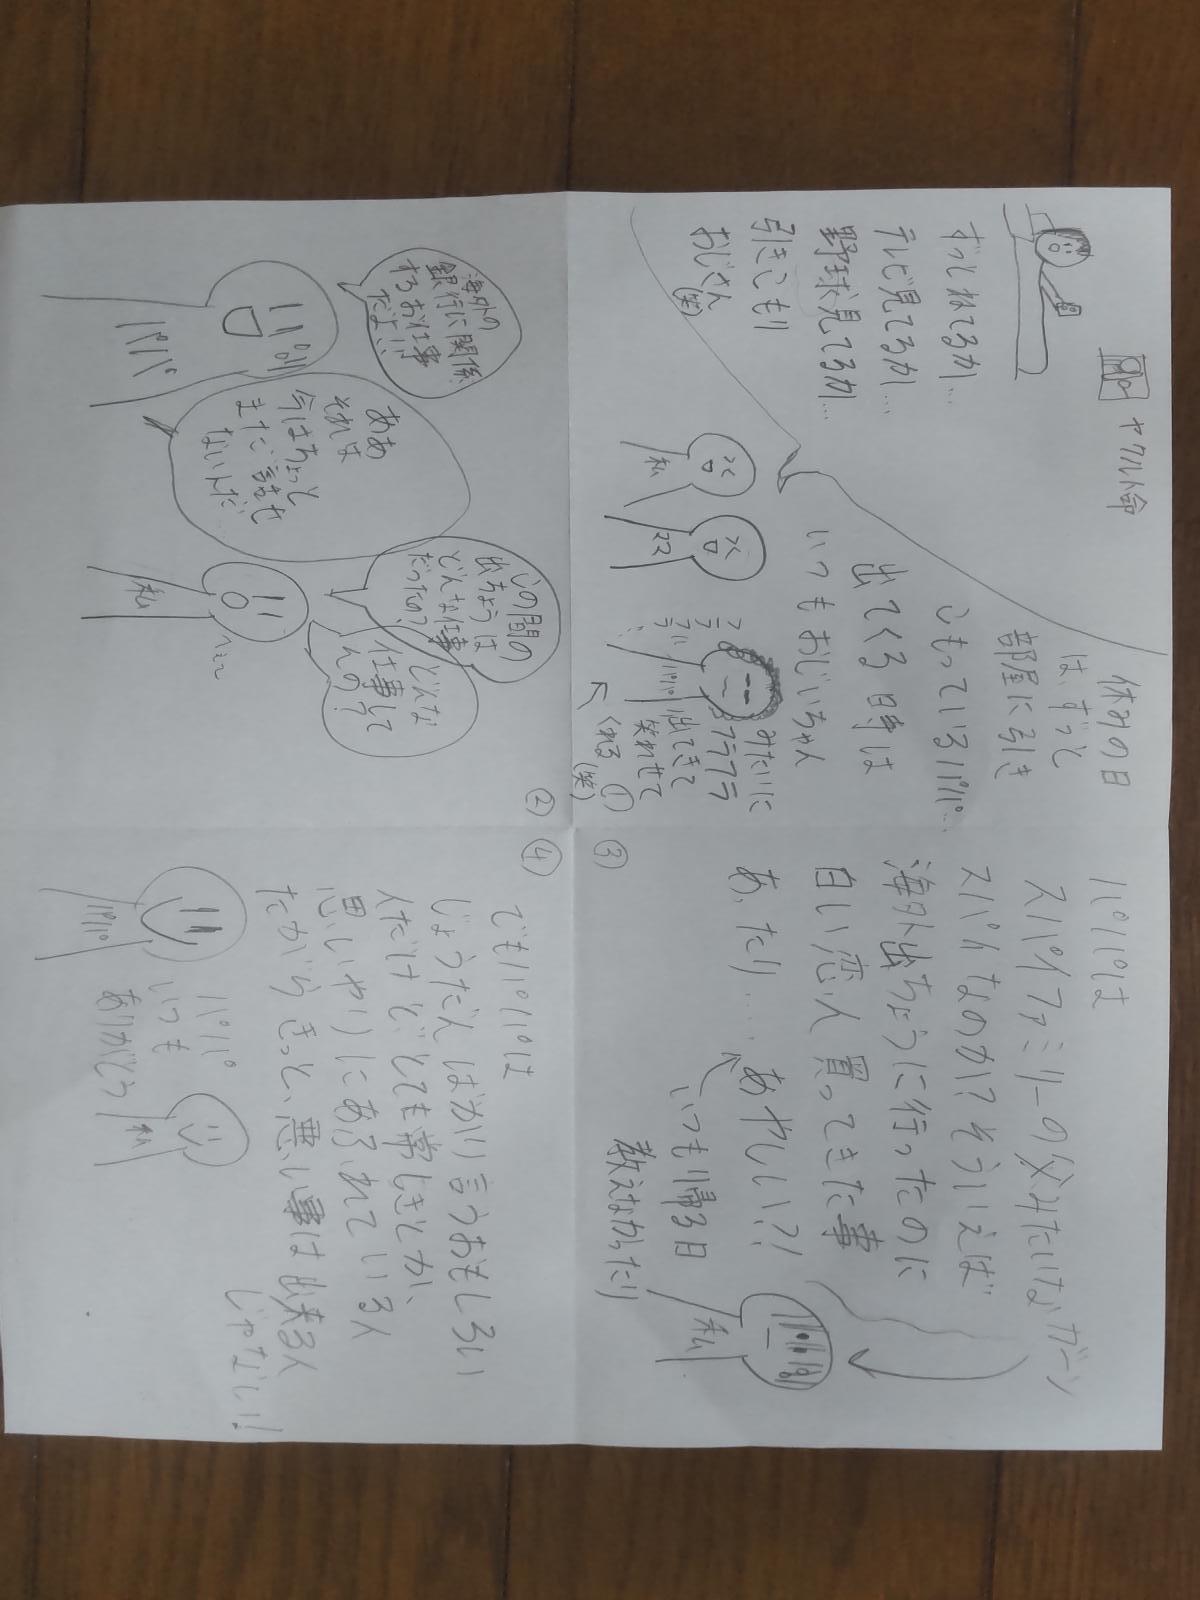 休みの日
は、ずっと
部屋に引き
こもっているパパ…
出てくる時は
いつもおじいちゃん
みたいに
フラフラ
出てきて
笑わせて
くれる
(笑)
①
ヤクルト命
ずっとねてるか…
テレビ見てるか…
野球見てるか…
引きこもり
おじさん
(笑)
私
ママ
パパ
フラ
フラ
②
この間の
出ちょうは
どんな仕事
だったの?
どんな
仕事して
んの?
私
ああ
それは
今はちょっと
まだ話せ
ないんだ
海外の
銀行に関係
するお仕事
だよ!!
パパ
③
パパは
スパイファミリーの父みたいな
スパイなのか?そういえば
海外出ちょうに行ったのに
白い恋人買ってきた事
あったり… あやしい?!
いつも帰る日
教えなかったり
ガーン
私
④
でもパパは
じょうだんばかり言うおもしろい
人だけどとても常しきとか、
思いやりにあふれている人
だからきっと、悪い事は出来る人
じゃない!
パパ
いつも
ありがとう
パパ
私